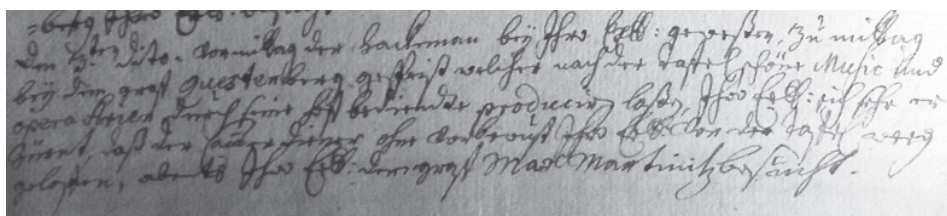 =berg Ihro Excell: besucht
Den 3ten dito. vormittag der Hackeman bey Ihro Excell: geweßen, zu mittag
bey dem graf Questenberg gespeist welcher nach der taffel schöne Music und
opera durch seine hoff bediendte produciren laßen, Ihro Excell: sich sehr er
zürnt, daß der Cammerdiener ohne vorbewust Ihro Excell: von der taffel weeg
geloffen, abents Ihro Excell: dem graf Max Martinitz besucht.